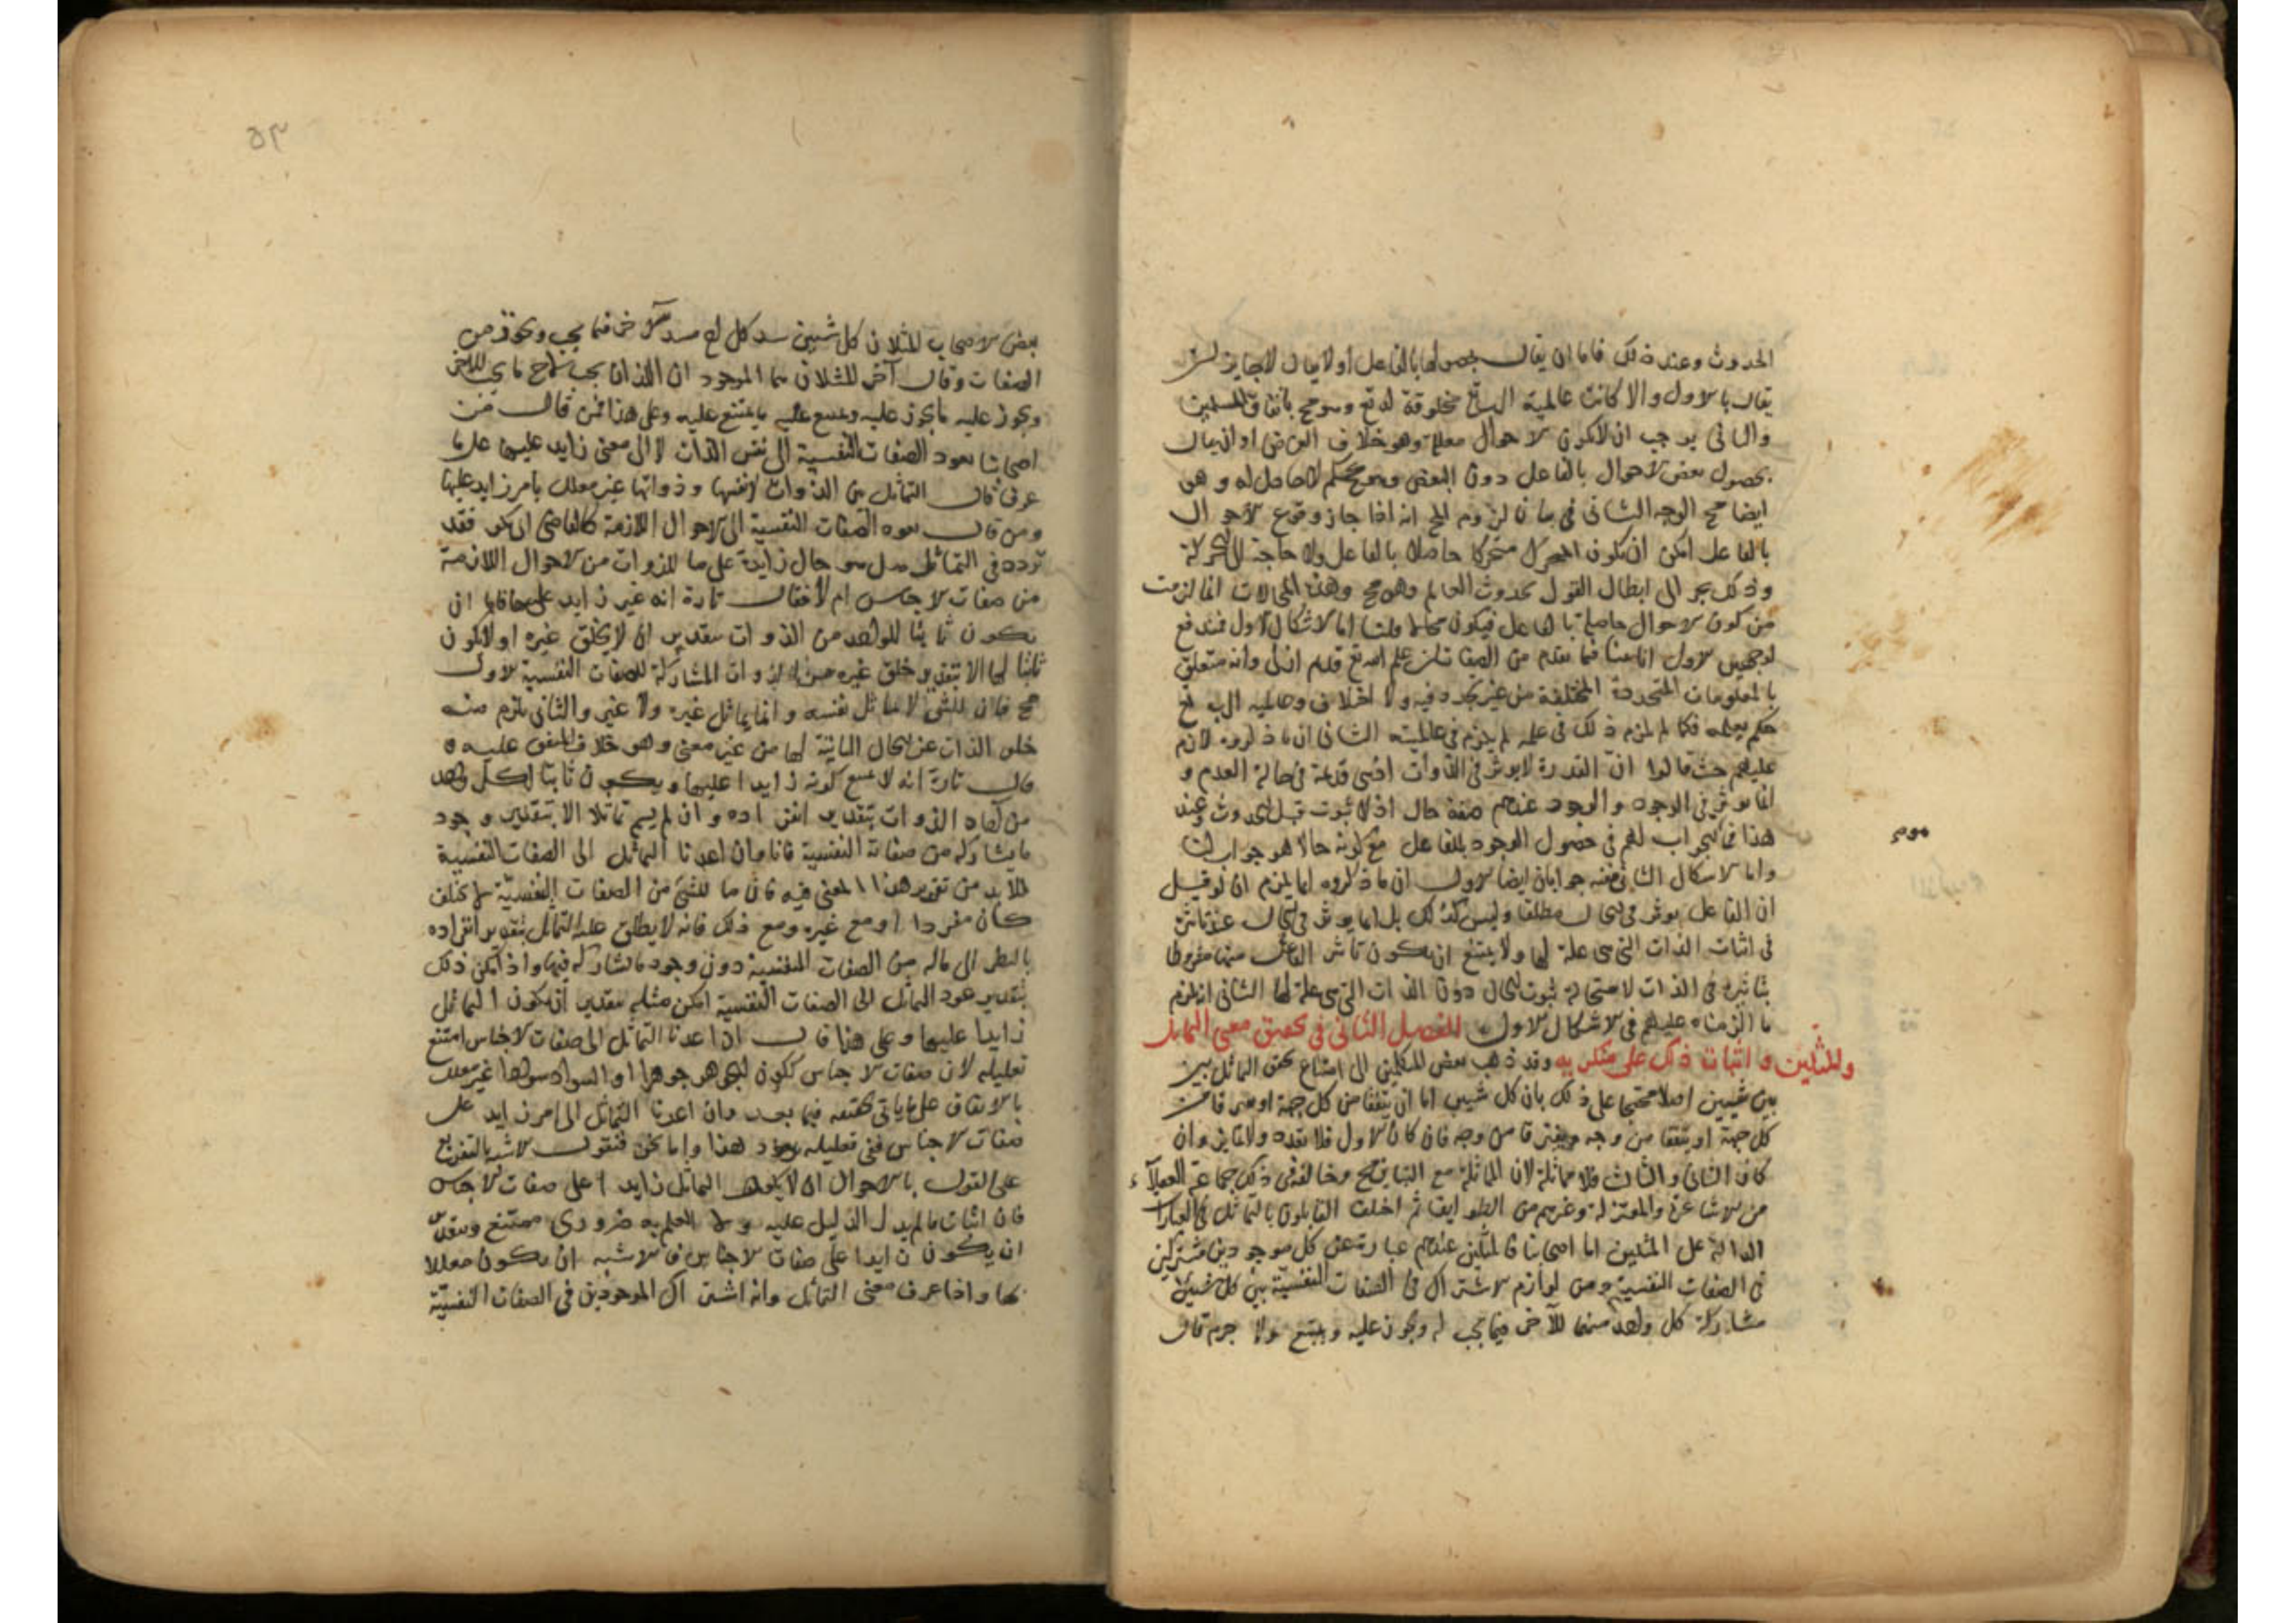 الحدوث وعند ذلك فاما ان يقال بحصولها بالفاعل أو لا يقال لا جايز ان
يقال بالاول والا كانت عالمية الرب تع مخلوقة له تع وهو مح باتفاق المسلمين
والثانى يوجب ان لا يكون الاحوال معللة وهو خلاف الفرض او ان يقال
بحصول بعض الاحوال بالفاعل دون البعض وهو تحكم لا حاصل له وهو
ايضا مح الوجه الثانى فى بيان لزوم المح انه اذا جاز وقوع الاحوال
بالفاعل امكن ان يكون المتحرك متحركا حاصلا بالفاعل ولا حاجة الى الحركة
وذلك يجر الى ابطال القول بحدوث العالم وهو مح وهذه المحالات انما لزمت
من كون الاحوال حاصلة بالفاعل فيكون محالا قلنا اما الاشكال الاول فمندفع
لوجهين الاول انا بينا فيما تقدم من الصفات ان علم الله تع قديم ازلى وانه متعلق
بالمعلومات المتجددة المختلفة من غير تجدد فيه ولا اختلاف وعالمية الرب تع
حكم بعلمه فكما لم يلزم ذلك فى علمه لم يلزم فى عالميته الثانى ان ما ذكروه لازم
عليهم حيث قالوا ان القدرة لا يوثر فى الذوات اذ هى قديمة فى حالة العدم و
انما يوثر فى الوجود والوجود عندهم صفة حال اذ لا ثبوت قبل الحدوث وعند
هذا فما لجواب لهم فى حصول الوجود بالفاعل مع كونه حالا هو جواب لنا
واما الاشكال الثانى فعنه جوابان ايضا الاول ان ما ذكروه انما يلزم ان لو قيل
ان الفاعل يوثر فى الحال مطلقا وليس كذلك بل انما يوثر فى الحال عند تاثيره
فى اثبات الذات التى هى علة لها ولا يمتنع ان يكون تاثير الفاعل منها مشروطا
بتاثيره فى الذات لاستحالة ثبوت الحال دون الذات التى هى علة لها الثانى انه يلزم
ما الزمناه عليهم فى الاشكال الاول الفصل الثانى فى تحقيق معنى التماثل
والمثلين و اثبات ذلك على منكريه وقد ذهب بعض المتكلمين الى امتناع تحقق التماثل بين
بين شيين اصلا محتجا على ذلك بان كل شيين اما ان يتفقا من كل جهة او يفترقا من
كل جهة او يتفقا من وجه ويفترقا من وجه فان كان الاول فلا تعدد ولا تمايز وان
كان الثانى والثالث فلا مماثلة لان المماثلة مع التباين مح وخالفه فى ذلك جماعة العقلاء
من الاشاعرة والمعتزلة وغيرهم من الطوايف ثم اختلف القايلون بالتماثل فى العبارات
الدالة على المثلين اما اصحابنا فالمثلين عندهم عبارة عن كل موجودين مشتركين
فى الصفات النفسية ومن لوازم الاشتراك فى الصفات النفسية بين كل شيين
مشاركة كل واحد منهما للآخر فيما يجب له ويجوز عليه ويمتنع ولا جرم قال
٥٣
بعض الاصحاب المثلان كل شيين سد كل مسد الآخر فيما يجب ويجوز من
الصفات وقال آخر المثلان هما الموجودان اللذان يجب لاحدهما ما يجب للآخر
ويجوز عليه ما يجوز عليه ويمتنع عليه ما يمتنع عليه وعلى هذا فمن قال من
اصحابنا بعود الصفات النفسية الى نفس الذات لا الى معنى زايد عليها على ما
عرف قال التماثل بين الذوات لانفسها و ذواتها غير معلل بامر زايد عليها
ومن قال بعود الصفات النفسية الى الاحوال اللازمة كالقاضى ابى بكر فقد
تردد فى التماثل هل هو حال زايدة على ما للذوات من الاحوال اللازمة
من صفات الاجناس ام لا فقال تارة انه غير زايد عليها فاما ان
يكون ثابتا للواحد من الذوات بتقدير ان لا يخلق غيره او لا يكون
ثابتا لها الا بتقدير خلق غيره من الذوات المشاركة للصفات النفسية الاول
مح فان الشى لا يماثل نفسه و انما يماثل غيره ولا غير والثانى يلزم منه
خلو الذات عن الحال الثابتة لها من غير معنى وهو خلاف المتفق عليه و
قال تارة انه لا يمتنع كونه زايدا عليها ويكون ثابتا لكل واحد
من آحاد الذوات بتقدير انفراده و ان لم يسم تماثلا الا بتقدير وجود
ما يشاركه من صفاته النفسية فانا وان اعدنا التماثل الى الصفات النفسية
فلا بد من تقدير هذا المعنى فيه فان ما للشئ من الصفات النفسية لا يختلف
كان مفردا او مع غيره ومع ذلك فانه لا يطلق عليه التماثل بتقدير انفراده
بالنظر الى ماله من الصفات النفسية دون وجود ما يشاركه فيها واذا امكن ذلك
بتقدير عود التماثل الى الصفات النفسية امكن مثله بتقدير ان يكون التماثل
زايدا عليها وعلى هذا قال ان اعدنا التماثل الى صفات الاجناس امتنع
تعليله لان صفات الاجناس ككون الجوهر جوهرا او السواد سوادا غير معلل
بالاتفاق على ما ياتى تحقيقه فيما بعد وان اعدنا التماثل الى امر زايد على
صفات الاجناس ففى تعليله تردد هذا واما نحن فنقول الاشبه بالتفريع
على القول بالاحوال ان لا يكون التماثل زايدا على صفات الاجناس
فان اثبات ما لم يدل الدليل عليه ولا العلم به ضرورى ممتنع وبتقدير
ان يكون زايدا على صفات الاجناس فالاشبه ان يكون معللا
بها واذا عرف معنى التماثل وانه اشتراك الموجودين فى الصفات النفسية